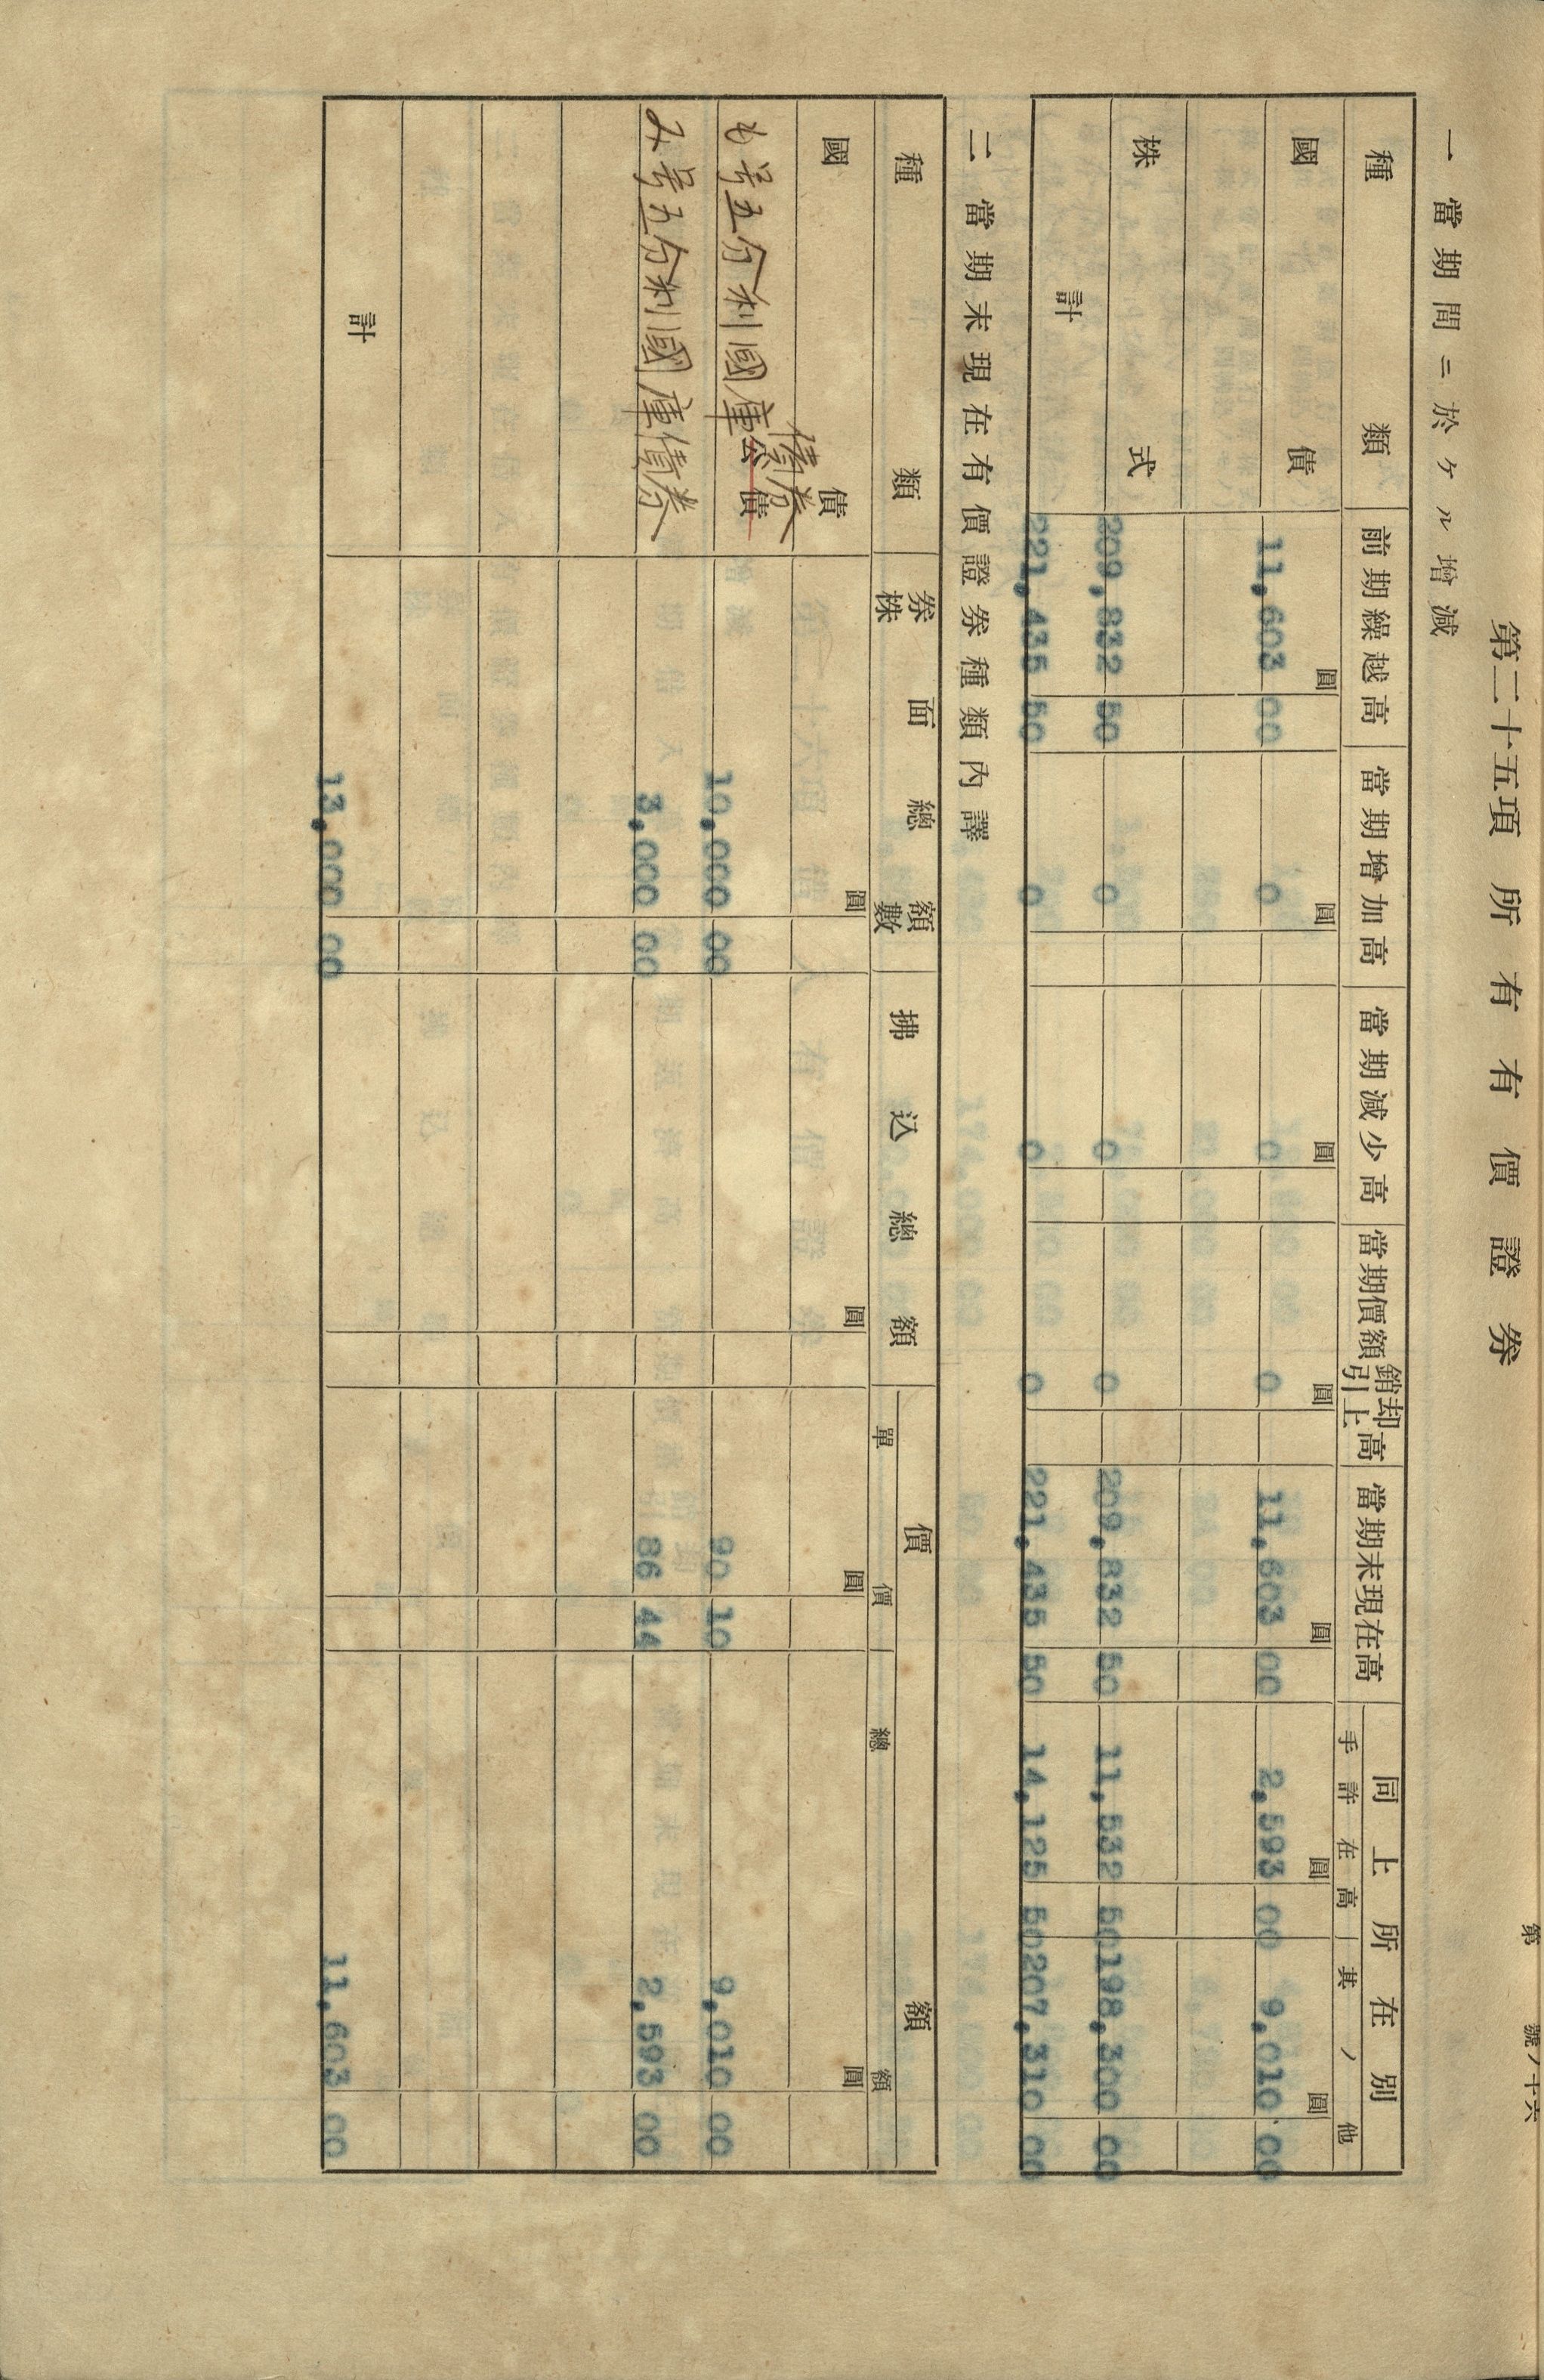 第 號ノ十六
第二十五項 所有有價證券
一 當期間ニ於ケル增減
種類 前期繰越高 當期增加高 當期減少高 當期價額銷却引上高 當期末現在高 同上所在別
手許在高 其ノ他
圓 圓 圓 圓 圓 圓 圓
國債 11,603 00 0 0 0 11,603 00 2,593 00 9,010 00
株式 209,832 50 0 0 0 209,832 50 11,532 50 198,300 00
計 221,435 50 0 0 0 221,435 50 14,125 50 207,310 00
二 當期末現在有價證券種類內譯
種類 券面總額 株數 拂込總額 價額
單價 總額
國債 圓 圓 圓 圓
債券
も号五分利國庫公債 10,000 00 90 10 9,010 00
み号五分利國庫債券 3,000 00 86 44 2,593 00
計 13,000 00 11,603 00